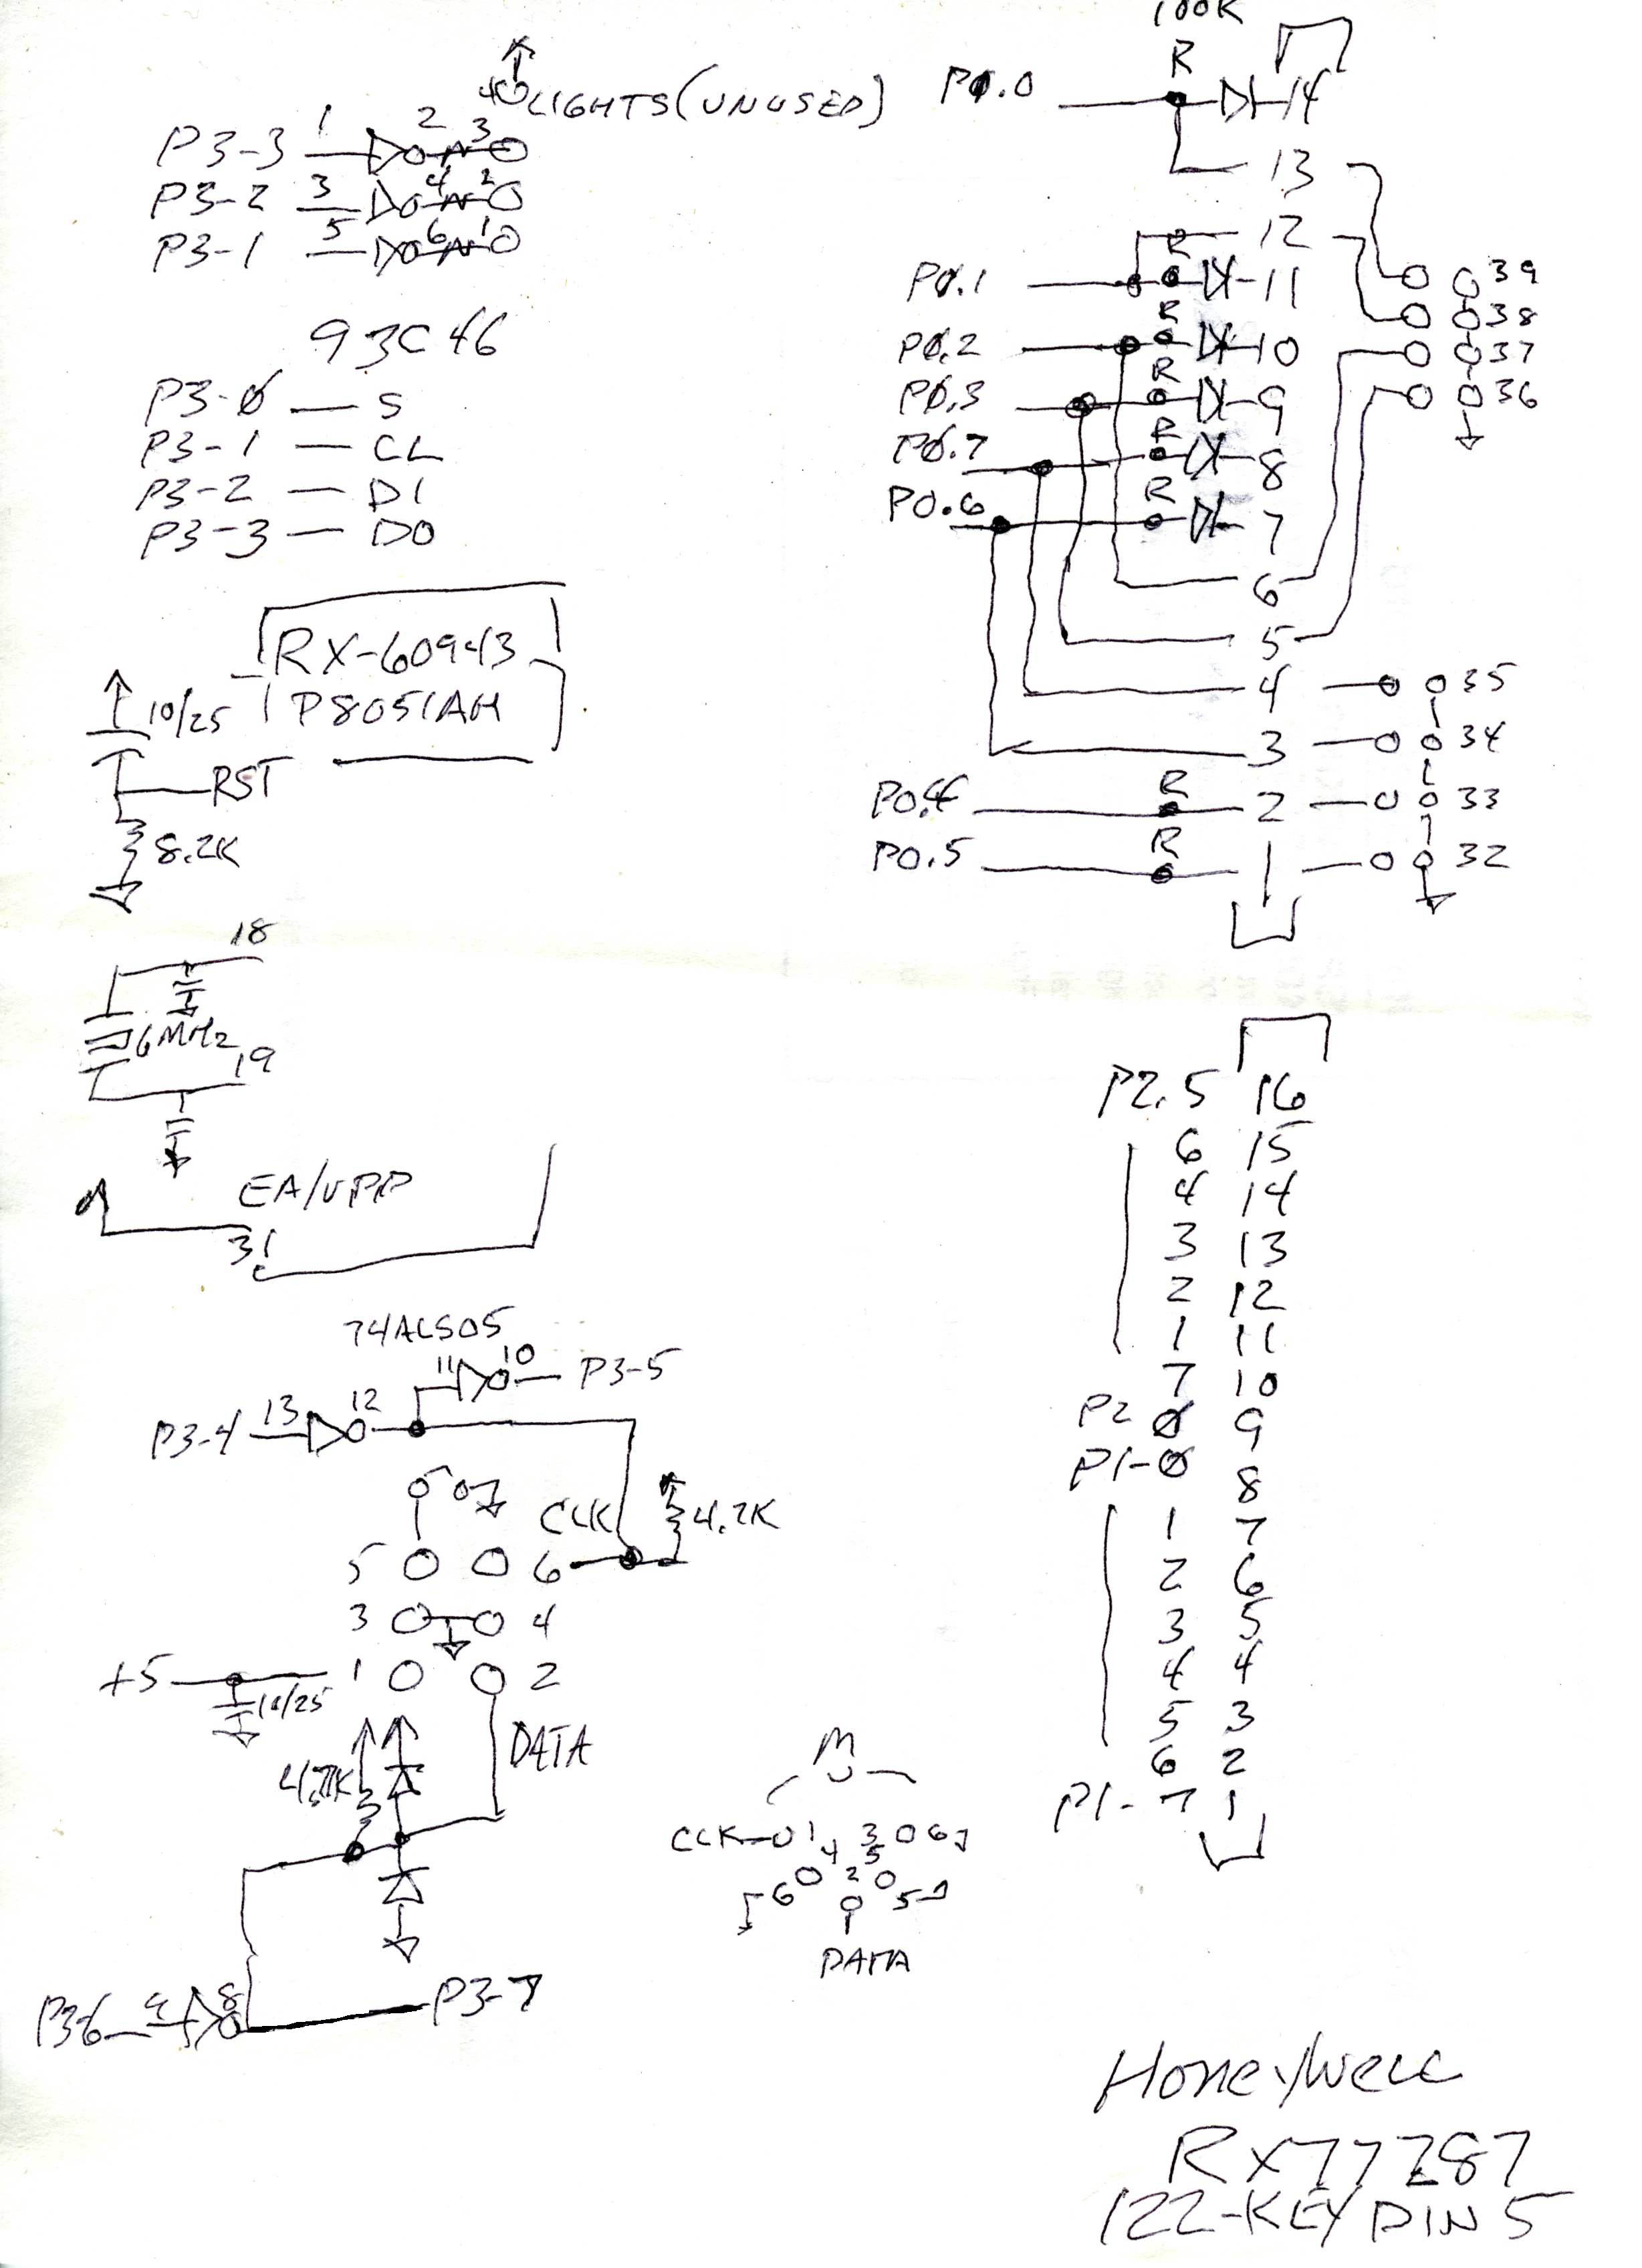 100K
R
P0.0 14
4 LIGHTS (UNUSED)
P3-3 1 2 3
P3-2 3 4 2
P3-1 5 6 1
13
12
P0.1 R 11
P0.2 R 10
P0.3 R 9
P0.7 R 8
P0.6 R 7
6
5
4
3
P0.4 R 2
P0.5 R 1
39
38
37
36
35
34
33
32
93C46
P3-0 — S
P3-1 — CL
P3-2 — DI
P3-3 — DO
RX-60943
P8051AH
10/25
RST
8.2K
18
6MHz
19
EA/VPP
31
74ALS05
11 10 P3-5
P3-4 13 12
CLK 4.7K
5 6
3 4
+5 1 2
10/25
4.7K
DATA
P3-6 9 8 P3-7
CLK 1 3 6
4 5
6 2 5
DATA
P2.5 16
6 15
4 14
3 13
2 12
1 11
7 10
P2 0 9
P1-0 8
1 7
2 6
3 5
4 4
5 3
6 2
P1-7 1
Honeywell
RX77Z87
122-KEY DIN 5